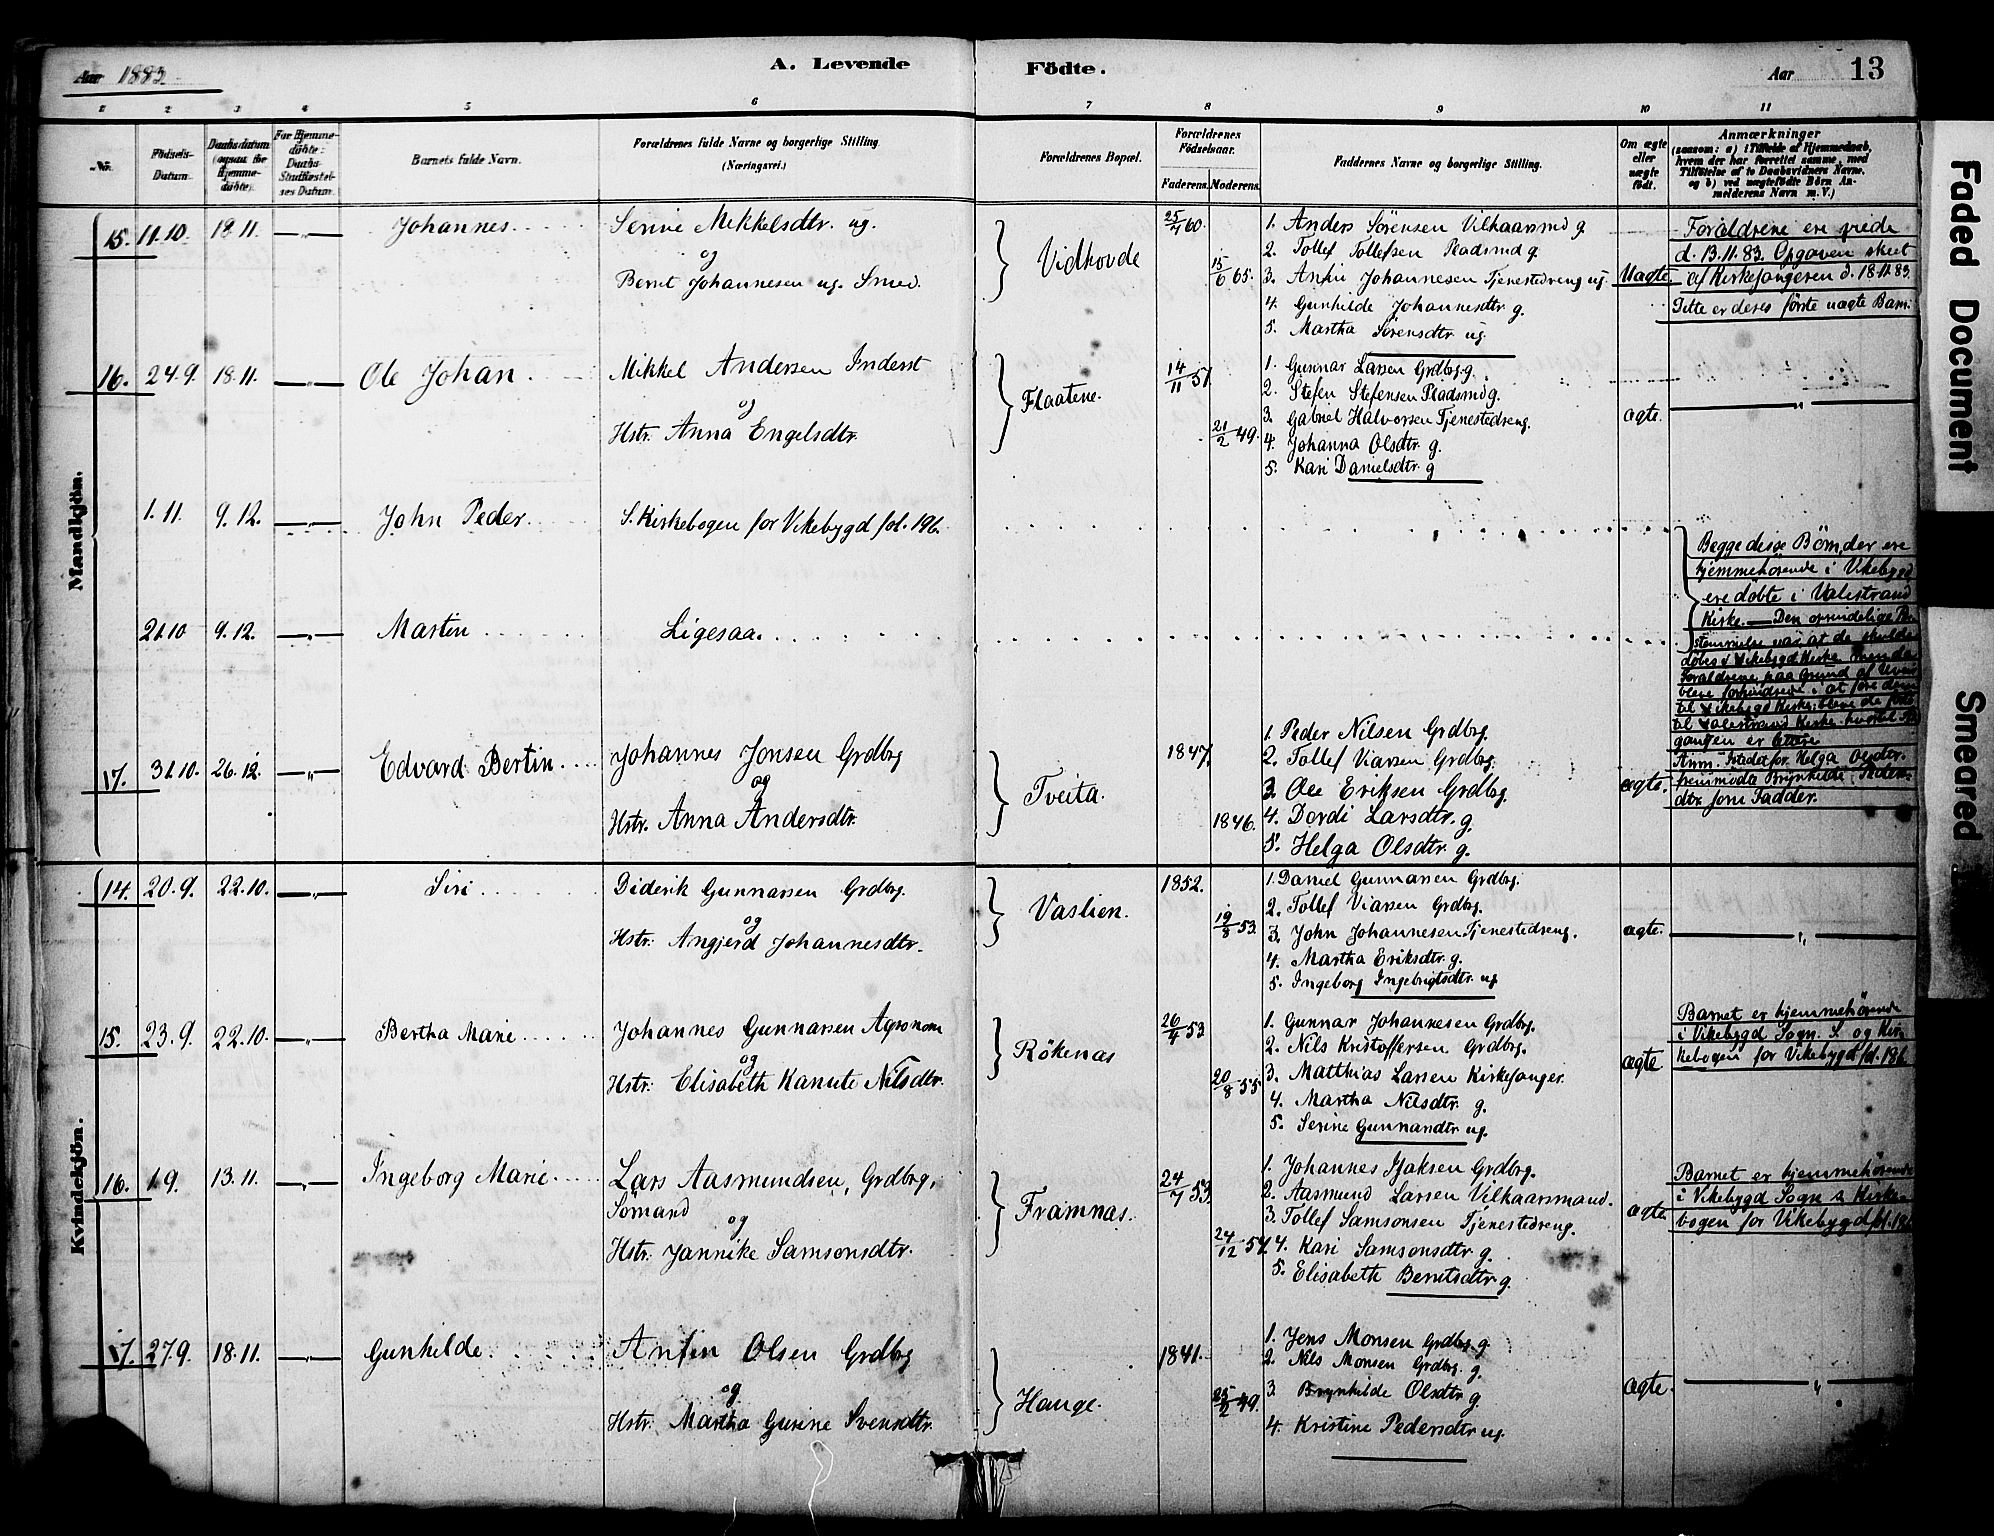 Aar 1883.
A. Levende Födte.
Aar 13
1 2 3 4 5 6 7 8 9 10 11
No.
Födsels-Datum.
Daabsdatum (ogsaa for Hjemmedöbte).
For Hjemmedöbte: Daabs-Stadfæstelses Datum.
Barnets fulde Navn.
Forældrenes fulde Navne og borgerlige Stilling (Næringsvei.)
Forældrenes Bopæl.
Forældrenes Födselsaar.
Faderens. Moderens.
Faddernes Navne og borgerlige Stilling.
Om ægte eller uægte födt.
Anmærkninger
(saasom: a) i Tilfælde af Hjemmedaab, hvem der har forrettet samme, med Tilföielse af to Daabsvidners Navne, og b) ved uægtefödte Börn Anmelderens Navn m. V.)
Mandkjön.
15. 11.10 18.11. Johannes
Serine Mikkelsdtr. ug.
og
Bernt Johannesen ug. Smed.
Vidhovde
25/4 60.
15/6 65.
1. Anders Sörensen Vilkaarsmd g.
2. Tollef Tollefsen Pladsmd g.
3. Anfin Johannesen Tjenestedreng ug.
4. Gunhilde Johannesdtr g.
5. Martha Sörensdtr ug.
Uægte
Forældrene ere viede
d. 13.11.83. Opgaven skeet
af Kirkesangeren d. 18.11.83.
Dette er deres første uægte Barn.
16. 24.9. 18.11. Ole Johan.
Mikkel Andersen Inderst
og
Hstr. Anna Engelsdtr.
Flaatene.
14/11 51.
21/2 49.
1. Gunnar Larsen Grdbrg. g.
2. Stefen Stefensen Pladsmd g.
3. Gabriel Halvorsen Tjenestedreng.
4. Johanna Olsdtr. g.
5. Kari Danielsdtr. g
ægte.
1.11. 9.12. John Peder.
S. Kirkebogen for Vikebygd fol. 196.
21.10 9.12. Martin
Ligesaa.
Begge disse Børn, der ere
hjemmehörende i Vikebygd
ere döbte i Valestrand
Kirke. — Den oprindelige Be-
stemmelse var at de skulde
döbes i Vikebygd Kirke men da
Forældrene paa Grund af
bleve forhindrede i at före dem
til Vikebygd Kirke, bleve de
til Valestrand Kirke hvortil
gangen er lettere
Anm. Istedetfor Helga Olsdtr.
fremmødte Brynhilde Peders-
dtr som Fadder.
17. 31.10. 26.12. Edvard Bertin.
Johannes Jonsen Grdbrg
og
Hstr. Anna Andersdtr.
Tveita.
1847.
1846.
1. Peder Nilsen Grdbrg.
2. Tollef Viarsen Grdbrg.
3. Ole Eriksen Grdbrg.
4. Dordi Larsdtr. g.
5. Helga Olsdtr. g.
ægte.
Kvindekjön.
14. 20.9. 22.10. Siri
Diderik Gunnarsen Grdbrg.
og
Hstr: Angjerd Johannesdtr.
Vaslien.
1852.
19/8 53.
1. Daniel Gunnarsen Grdbrg.
2. Tollef Viarsen Grdbrg.
3. John Johannesen Tjenestedreng.
4. Martha Eriksdtr. g.
5. Ingeborg Ingebrigtsdtr. ug
ægte.
15. 23.9. 22.10. Bertha Marie
Johannes Gunnarsen Agronom
og
Hstr: Elisabeth Kanute Nilsdtr.
Rökenæs
26/4 53
20/8 55.
1. Gunnar Johannesen Grdbrg.
2. Nils Kristoffersen Grdbrg.
3. Matthias Larsen Kirkesanger.
4. Martha Nilsdtr. g.
5. Serine Gunnarsdtr ug.
ægte
Barnet er hjemmehörende
i Vikebygd Sogn. S. og Kir-
kebogen for Vikebygd fol. 186.
16. 1.9. 13.11. Ingeborg Marie
Lars Aasmundsen, Grdbrg,
Sömand
og
Hstr: Jannike Samsonsdtr.
Framnæs.
24/7 53
24/12 57.
1. Johannes Isaksen Grdbrg.
2. Aasmund Larsen Vilkaarsmand.
3. Tollef Samsonsen Tjenestedreng.
4. Kari Samsonsdtr g.
5. Elisabeth Berntsdtr. g.
ægte
Barnet er hjemmehörende
i Vikebygd Sogn s. Kirke-
bogen for Vikebygd fol. 186
17. 27.9. 18.11. Gunhilde.
Anfin Olsen Grdbrg
og
Hstr. Martha Gurine Svensdtr.
Hauge.
1841.
25/2 49.
1. Jens Monsen Grdbrg. g.
2. Nils Monsen Grdbrg. g.
3. Brynhilde Olsdtr g.
4. Kristine Pedersdtr ug.
ægte.
Faded Document
Smeared